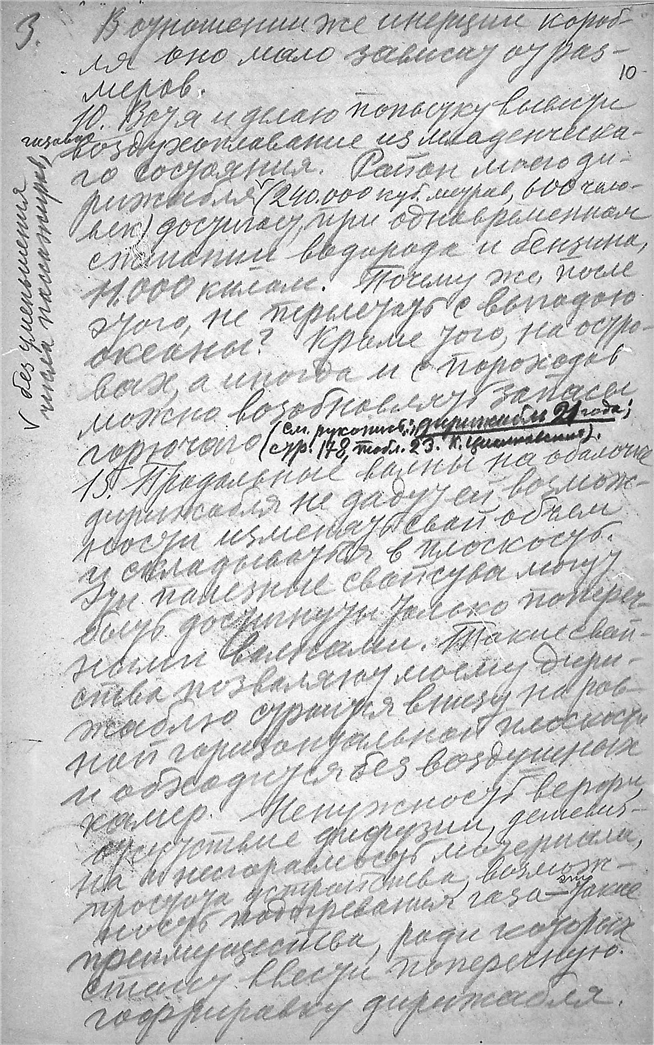 3.
10
В отношении же инерции кораб-
ля оно мало зависит от раз-
меров.
10. Вот я и делаю попытку вывести
газовое
воздухоплавание из младенческа-
го состояния. Район моего ди-
рижабля (240.000 куб. метров, 600 чело-
век) достигает, при одновременном
сжигании водорода и бензина,
11.000 килом. Почему же, после
этого, не перелетать с выгодою
океаны? Кроме того, на остро-
вах, а иногда и с пароходов
можно возобновлять запасы
горючего (см. рукопись: дирижабль 21 года;
стр. 178, табл. 23. К. Циолковский).
15. Продольные волны на оболочке
дирижабля не дадут ей возмож-
ности изменять свой объем
и складываться в плоскость.
Эти полезные свойства могут
быть достигнуты только попереч-
ными волнами. Такие свой-
ства позволяют моему дири-
жаблю строится внизу на ров-
ной горизонтальной плоскости
и обходится без воздушных
камер. Ненужность верфи,
отсутствие диффузии, дешевиз-
на и несгораемость материала,
простота устройства, возмож-
ность подогревания газа — такие
эти
преимущества, ради которых
стоит ввести поперечную
гофрировку дирижабля.
V без уменьшения
числа пассажиров,